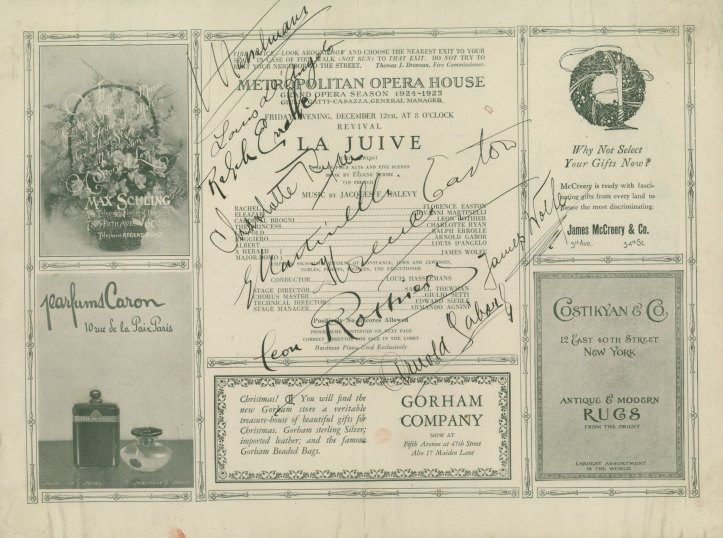 MAX SCHLING
785 FIFTH AVENUE
Telephone REGENT
parfums Caron
10 rue de la Paix Paris
LOOK AROUND NOW AND CHOOSE THE NEAREST EXIT TO YOUR
SEAT. IN CASE OF FIRE WALK (NOT RUN) TO THAT EXIT. DO NOT TRY TO
BEAT YOUR NEIGHBOR TO THE STREET. Thomas J. Drennan, Fire Commissioner.
METROPOLITAN OPERA HOUSE
GRAND OPERA SEASON 1924-1925
GATTI-CASAZZA, GENERAL MANAGER
FRIDAY EVENING, DECEMBER 12TH, AT 8 O'CLOCK
REVIVAL
LA JUIVE
ACTS AND FIVE SCENES
BOOK BY EUGENE SCRIBE
MUSIC BY JACQUES F. HALEVY
RACHEL FLORENCE EASTON
ELEAZAR GIOVANNI MARTINELLI
CARDINAL BROGNI LEON ROTHIER
THE PRINCESS CHARLOTTE RYAN
LEOPOLD RALPH ERROLLE
RUGGIERO ARNOLD GABOR
ALBERT LOUIS D'ANGELO
A HERALD
MAJOR-DOMO JAMES WOLFE
CONDUCTOR LOUIS HASSELMANS
STAGE DIRECTOR THEWMAN
CHORUS MASTER GIULIO SETTI
TECHNICAL DIRECTOR EDWARD SIEDLE
STAGE MANAGER ARMANDO AGNINI
Positively No Encores Allowed
PROGRAMME CONTINUED ON NEXT PAGE
CORRECT LIBRETTOS FOR SALE IN THE LOBBY
Hardman Piano Used Exclusively
Hasselmans
Louis D'Angelo
Ralph Errolle
Charlotte Ryan
Martinelli
Florence Easton
James Wolfe
Leon Rothier
Arnold Gabor
Christmas! You will find the
new Gorham store a veritable
treasure-house of beautiful gifts for
Christmas. Gorham sterling Silver;
imported leather; and the famous
Gorham Beaded Bags.
GORHAM
COMPANY
NOW AT
Fifth Avenue at 47th Street
Also 17 Maiden Lane
Why Not Select
Your Gifts Now?
McCreery is ready with fasci-
nating gifts from every land to
please the most discriminating.
James McCreery & Co.
5th Ave. 34th St.
COSTIKYAN & CO.
12 EAST 40TH STREET
NEW YORK
ANTIQUE & MODERN
RUGS
FROM THE ORIENT
LARGEST ASSORTMENT
IN THE WORLD